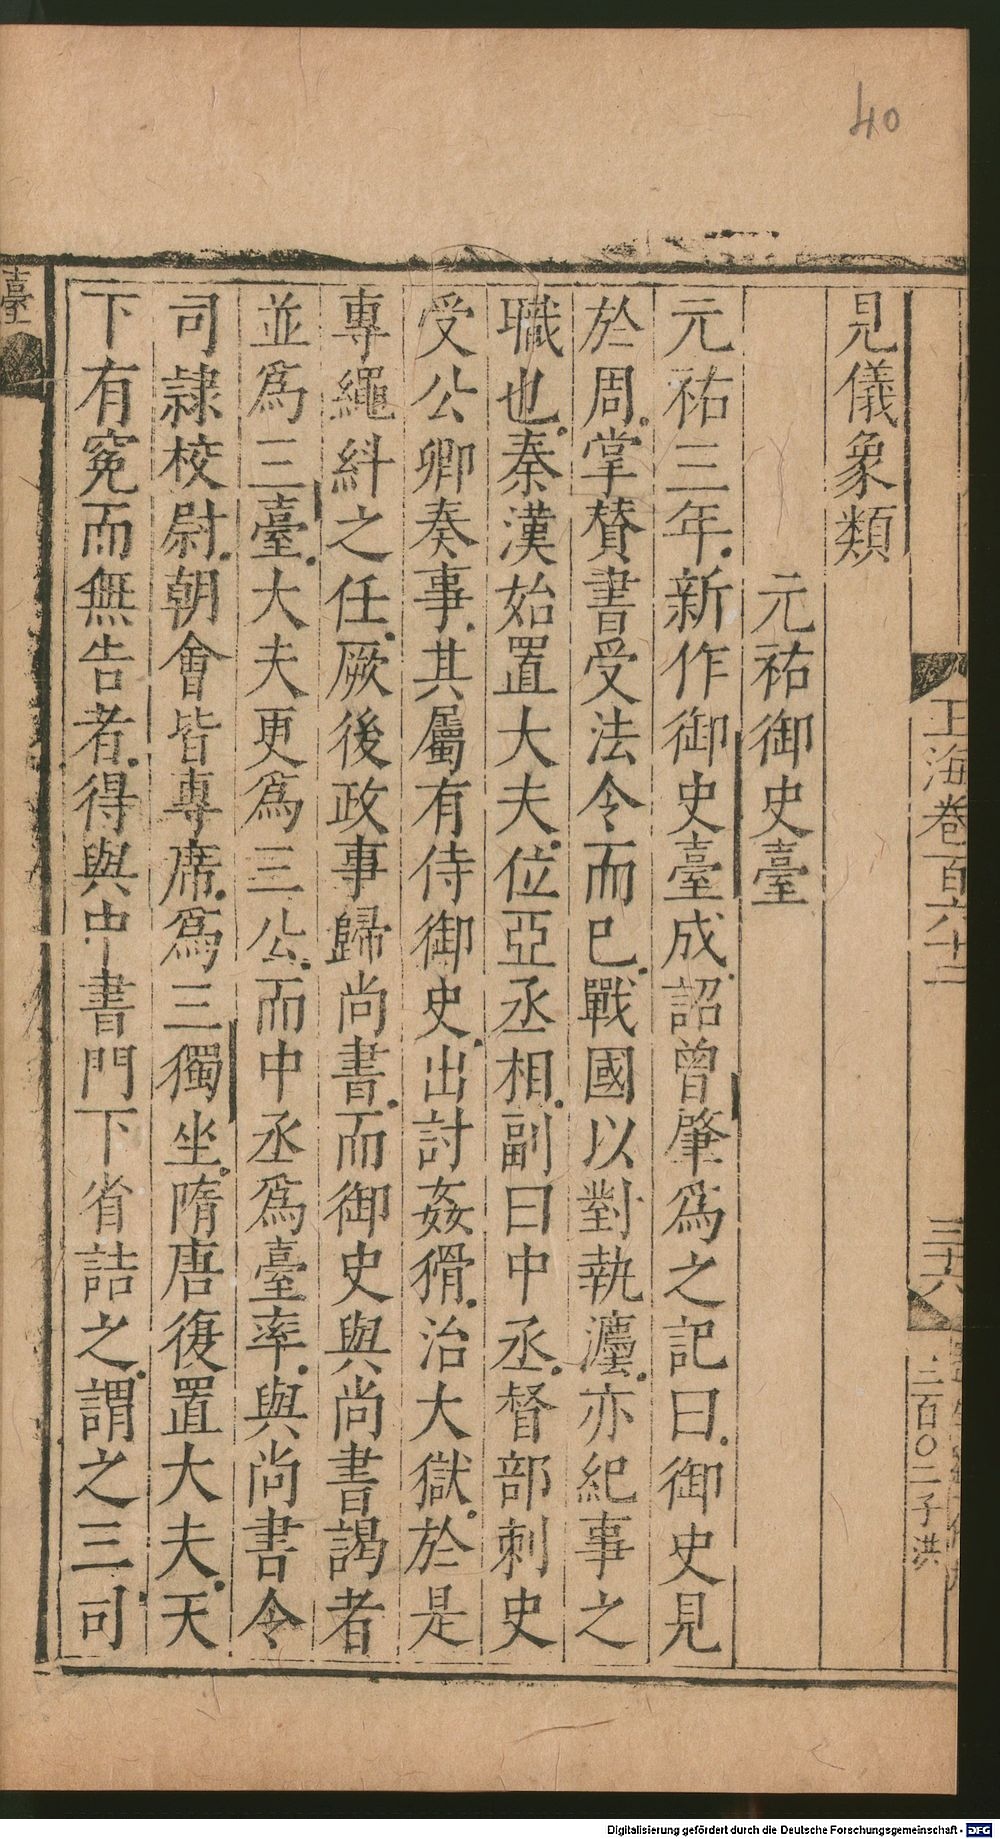 40
玉海卷百六十三
三十六
三百〇二子洪
見儀象類
元祐御史臺
元祐三年新作御史臺成詔曾肇爲之記曰御史見
於周掌贊書受法令而已戰國以對執灋亦紀事之
職也秦漢始置大夫位亞丞相副曰中丞督部刺史
受公卿奏事其屬有侍御史出討姦猾治大獄於是
專繩糾之任厥後政事歸尚書而御史與尚書謁者
並爲三臺大夫更爲三公而中丞爲臺率與尚書令
司隷校尉朝會皆專席爲三獨坐隋唐復置大夫天
下有寃而無告者得與中書門下省詰之謂之三司
臺
Digitalisierung gefördert durch die Deutsche Forschungsgemeinschaft - DFG